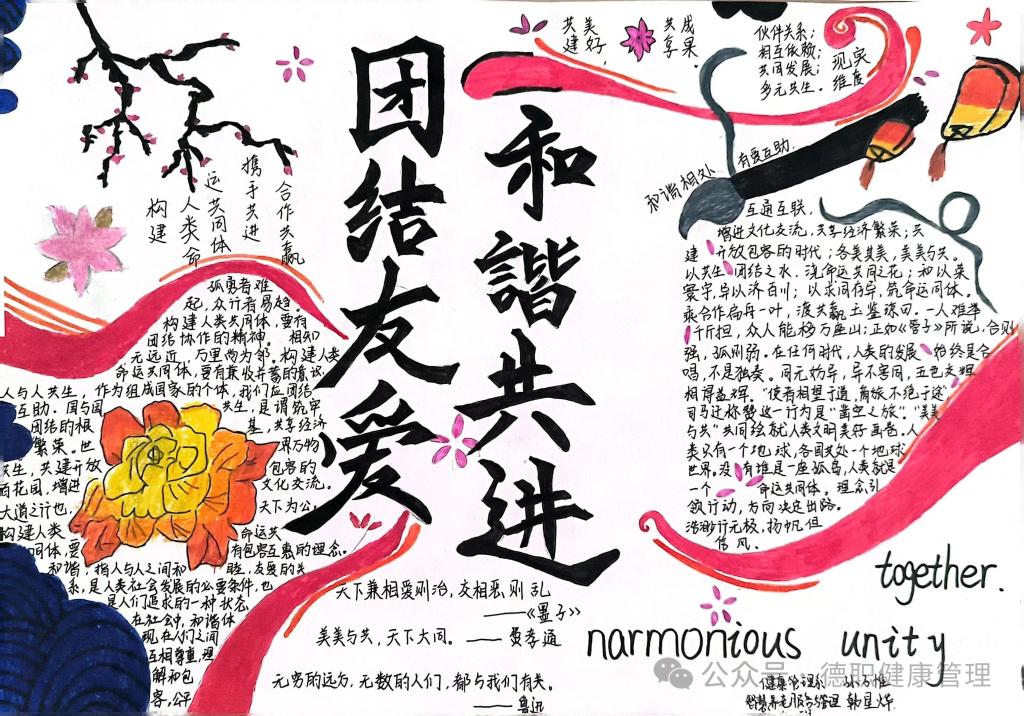 团结友爱
和谐共进
共建美好,
共享成果.
伙伴关系;
相互依赖;
共同发展;
多元共生.
现实
维度
构建
人类命
运共同体
携手共进
合作共赢
和谐相处
有爱互助.
孤勇者难
起,众行者易趋。
构建人类共同体,要有
团结协作的精神。相知
无远近,万里尚为邻。构建人类
命运共同体,要有兼收并蓄的意识
人与人共生,作为组成国家的个体,我们应团结
互助.国与国
共生,是谓筑牢
团结的根
基,共享经济
繁荣。世
界万物
共生,共建开放
包容的
百花园,增进
文化交流。
大道之行也,
天下为公。
构建人类
命运共
同体,要
有包容互惠的理念。
和谐,指人与人之间和
睦,友爱的关
系,是人类社会发展的必要条件,也
是人们追求的一种状态
在社会中,和谐体
现在人们之间
互相尊重,理
解和包
容,公平
互通互联,
增进文化交流,共享经济繁荣;共
建开放包容的时代;各美其美,美美与共。
以共生团结之水,浇命运共同之花;和以柔
寰宇,异以济百川;以求同存异,筑命运同体。
乘合作扁舟一叶,渡共赢玉鉴琼田。一人难举
千斤担,众人能移万座山;正如《管子》所说,合则
强,孤则弱。在任何时代,人类的发展始终是合
唱,不是独奏。同无妨异,异不害同,五色交辉
相得益辉。"使者相望于道,商旅不绝于途"
司马迁称赞这一行为是"凿空之旅"."美美
与共"共同绘就人类文明美好画卷.人
类只有一个地球,各国共处一个地球
世界。没有谁是一座孤岛,人类就是
一个命运共同体。理念引
领行动,方向决定出路。
浩渺行无极,扬帆但
信风.
天下兼相爱则治,交相恶则乱
——《墨子》
美美与共,天下大同。——费孝通
无穷的远方,无数的人们,都与我们有关。
——鲁迅
together.
narmonious unity
公众号·德职健康管理